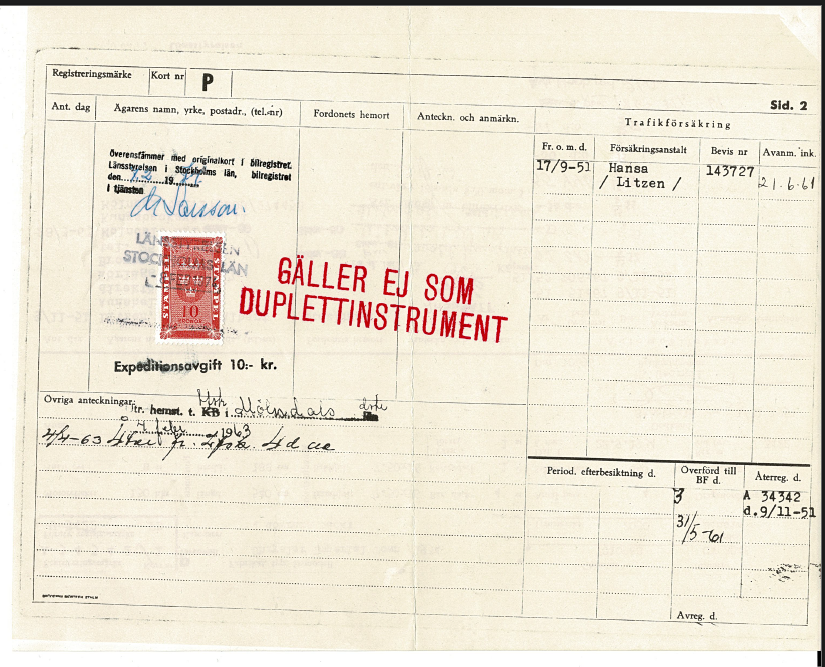 Registreringsmärke
Kort nr
P
Sid. 2
Ant. dag
Ägarens namn, yrke, postadr., (tel.-nr)
Fordonets hemort
Anteckn. och anmärkn.
Trafikförsäkring
Fr. o. m. d.
Försäkringsanstalt
Bevis nr
Avanm. ink.
17/9-51
Hansa
143727
/ Litzen /
21.6.61
Överensstämmer med originalkort i bilregistret.
Länsstyrelsen i Stockholms län, bilregistret
den 19
I tjänsten
STÄMPEL
10
KRONOR
GÄLLER EJ SOM
DUPLETTINSTRUMENT
Expeditionsavgift 10:- kr.
Övriga anteckningar:
hemst. t. KB i Mölndals
febr 1963
4/4-63
Period. efterbesiktning d.
Överförd till
BF d.
Återreg. d.
3
A 34342
d. 9/11-51
31/5-61
Avreg. d.